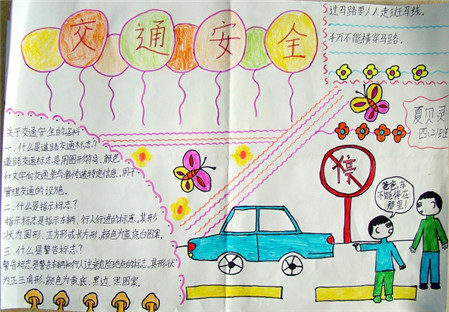 交通安全
过马路要人人走斑马线。
千万不能横穿马路。
夏贝灵
关于交通安全的资料
一、什么是道路交通标志?
道路交通标志是用图形符号、颜色
和文字向交通参与者传递特定信息、用于
管理交通的设施。
二、什么是指示标志?
指示标志是指示车辆、行人行进的标志,其形
状为圆形、正方形或长方形,颜色为蓝底白图案。
三、什么是警告标志?
警告标志是警告车辆和行人注意危险地段的标志,其形状
为正三角形,颜色为黄底、黑边、黑图案。
停
爸爸,车
不能停在
那里!